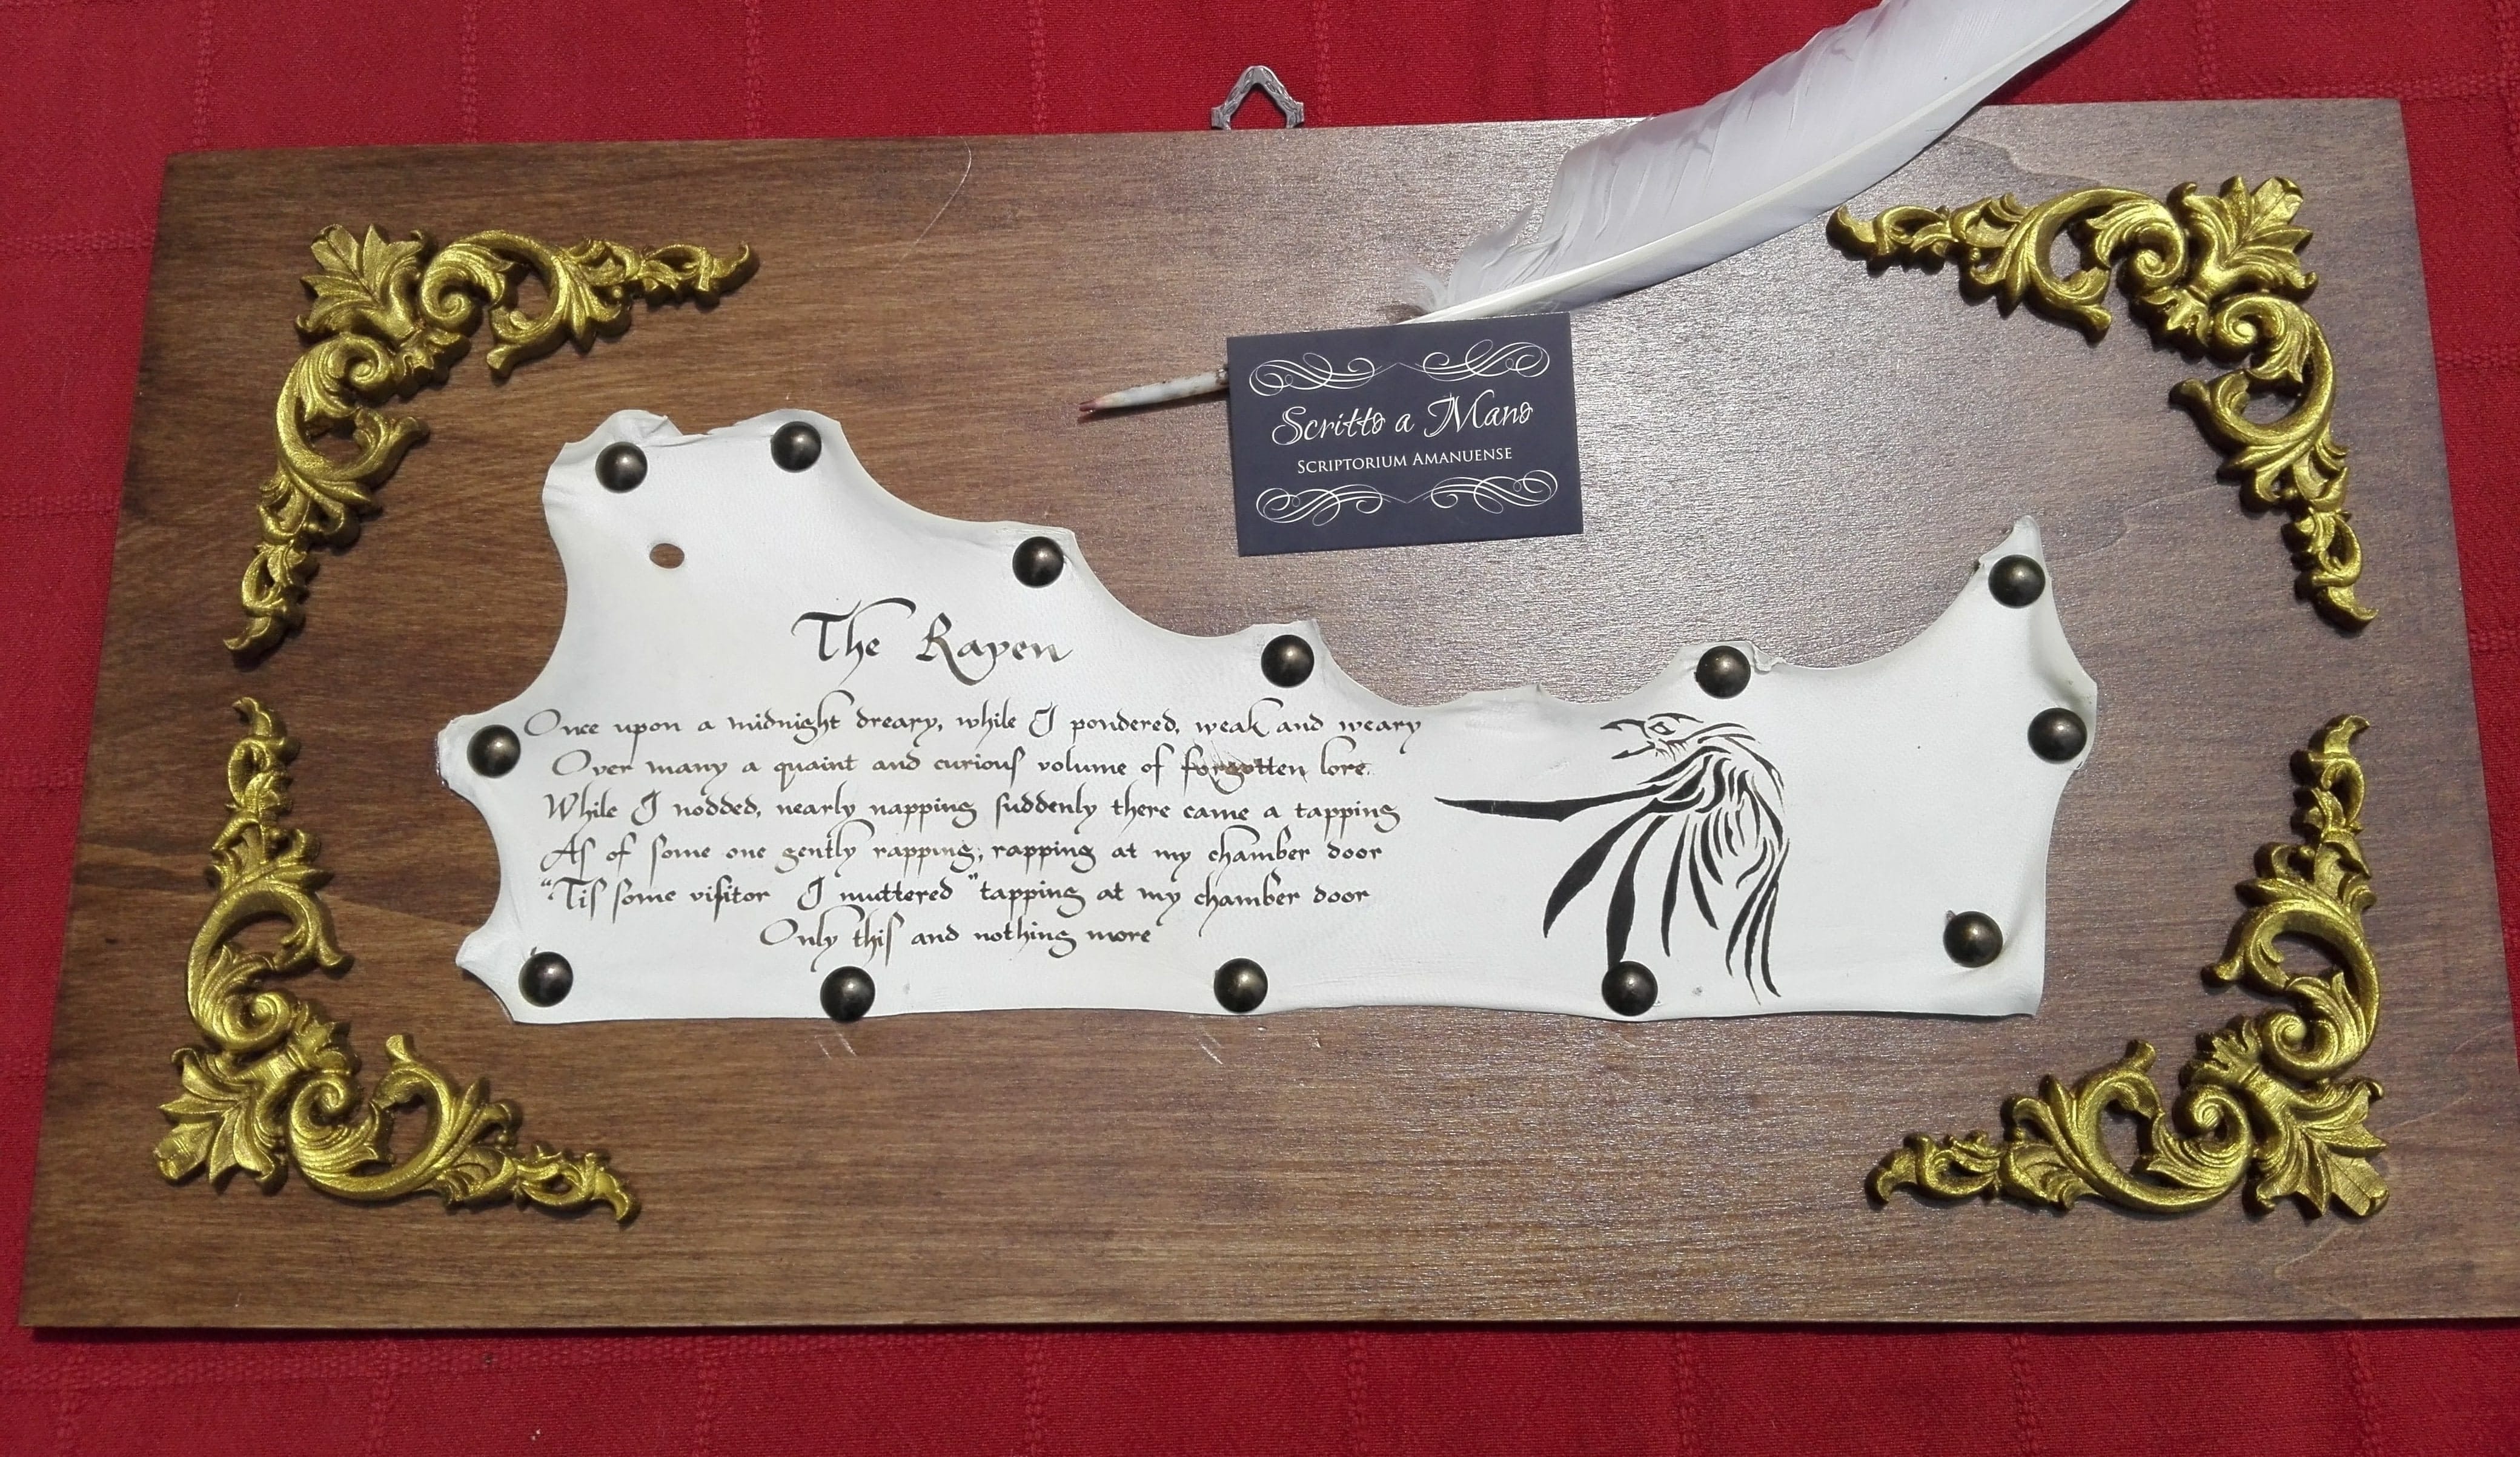 Scritto a Mano
SCRIPTORIUM AMANUENSE
The Raven
Once upon a midnight dreary, while I pondered, weak and weary
Over many a quaint and curious volume of forgotten lore.
While I nodded, nearly napping suddenly there came a tapping
As of some one gently rapping, rapping at my chamber door
"Tis some visitor I muttered "tapping at my chamber door
Only this and nothing more